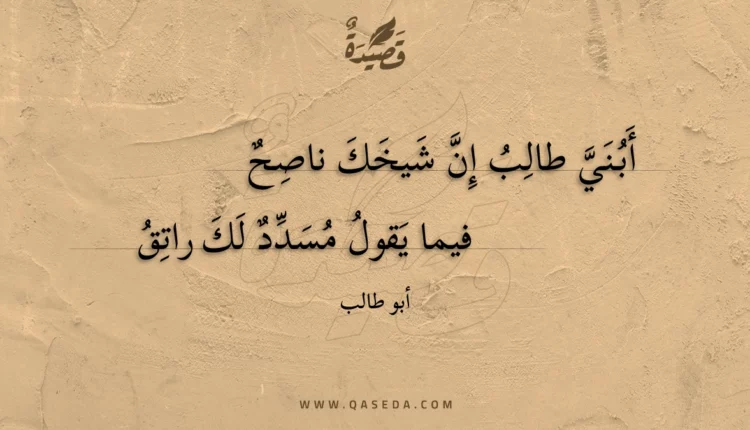 قَصِيدَةٌ
أَبُنَيَّ طالِبُ إِنَّ شَيخَكَ ناصِحٌ
فيما يَقولُ مُسَدِّدٌ لَكَ راتِقُ
أبو طالب
WWW.QASEDA.COM